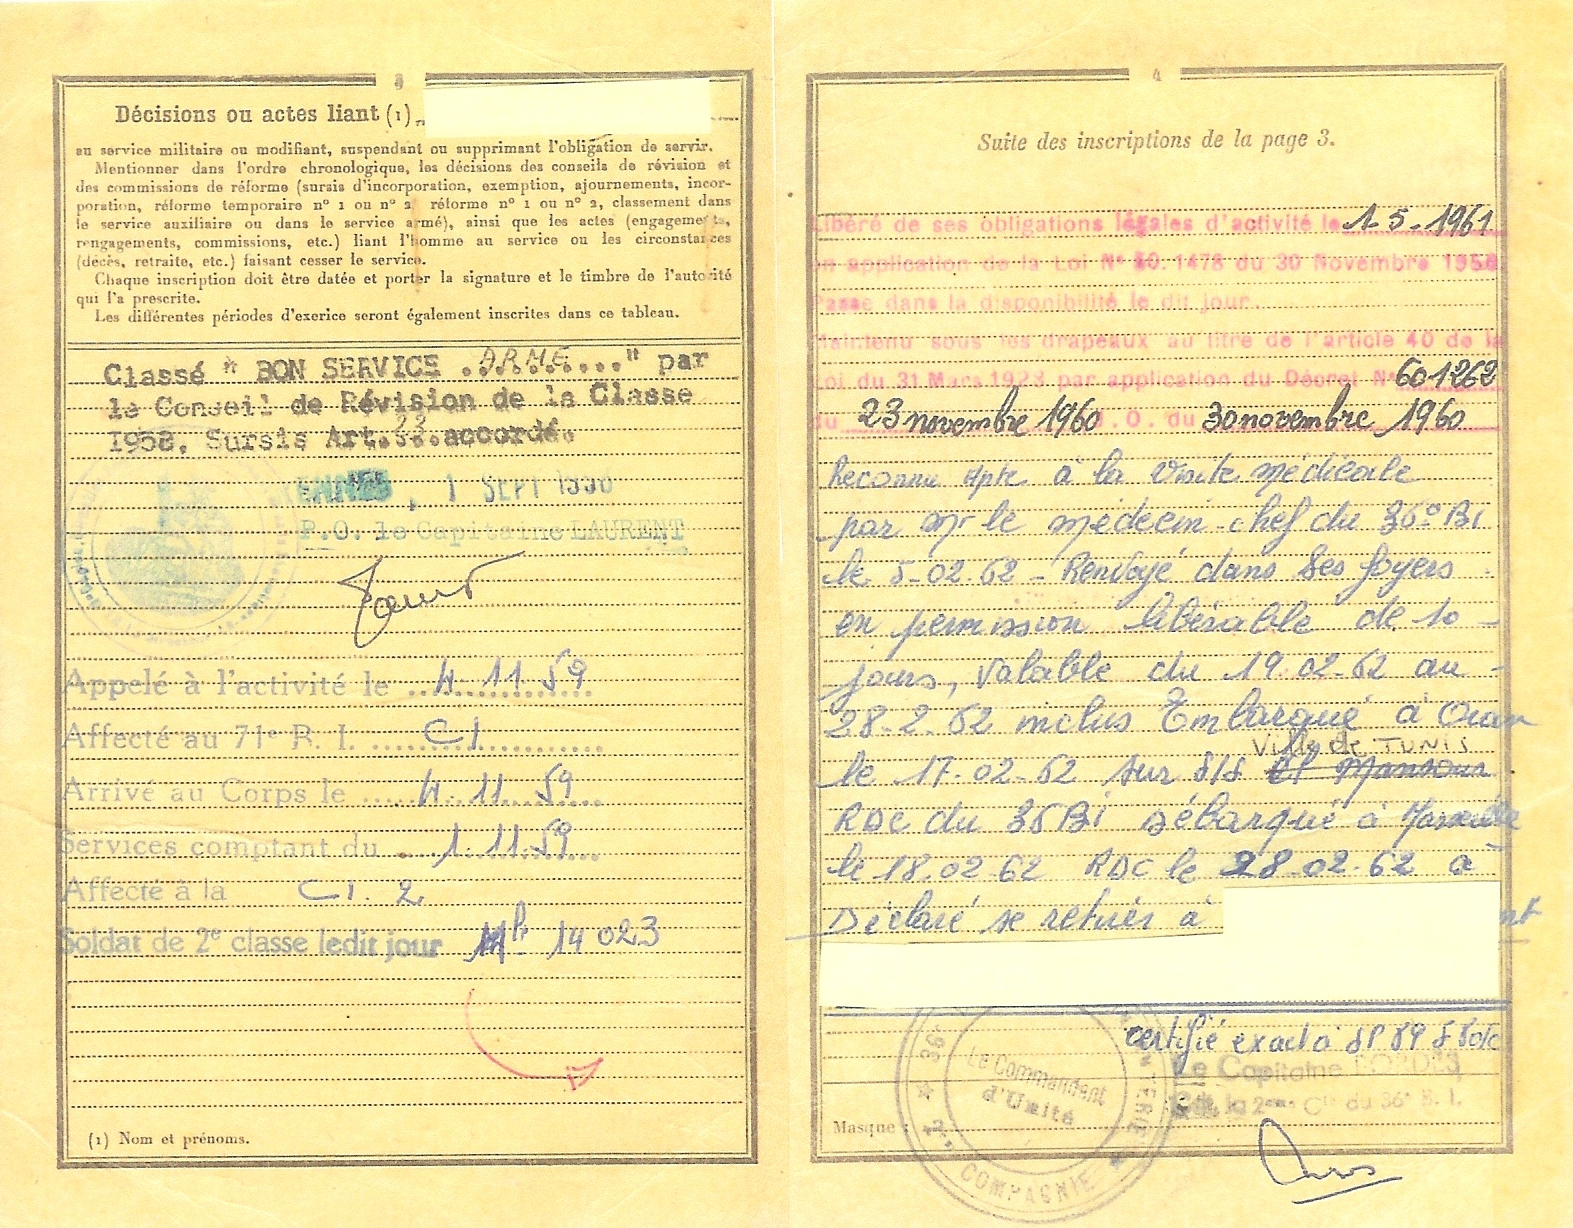 3
Décisions ou actes liant (1)
au service militaire ou modifiant, suspendant ou supprimant l'obligation de servir.
Mentionner dans l'ordre chronologique, les décisions des conseils de révision et
des commissions de réforme (sursis d'incorporation, exemption, ajournements, incor-
poration, réforme temporaire n° 1 ou n° 2, réforme n° 1 ou n° 2, classement dans
le service auxiliaire ou dans le service armé), ainsi que les actes (engagements,
rengagements, commissions, etc.) liant l'homme au service ou les circonstances
(décès, retraite, etc.) faisant cesser le service.
Chaque inscription doit être datée et porter la signature et le timbre de l'autorité
qui l'a prescrite.
Les différentes périodes d'exerice seront également inscrites dans ce tableau.
Classé " BON SERVICE ARME " par
le Conseil de Révision de la Classe
1958. Sursis Art. 23 accordé.
1 SEPT
P.O. le Capitaine LAURENT
Appelé à l'activité le 4 11 59
Affecté au 71e R. I. CI
Arrivé au Corps le 4 11 59
Services comptant du 1 11 59
Affecté à la CI. 2
Soldat de 2e classe ledit jour Mle 14 023
(1) Nom et prénoms.
4
Suite des inscriptions de la page 3.
Libéré de ses obligations légales d'activité le 1-5-1961
en application de la Loi N° 50.1478 du 30 Novembre 1950
Passe dans la disponibilité le dit jour.
Maintenu sous les drapeaux au titre de l'article 40 de la
Loi du 31 Mars 1928 par application du Décret N° 601262
du 23 novembre 1960 J.O. du 30 novembre 1960
Reconnu Apte à la Visite médicale
par Mr le médecin-chef du 36° BI
le 5-02-62 - Renvoyé dans ses foyers
en permission libérable de 10
jours, Valable du 19.02-62 au
28-2-62 inclus Embarqué à Oran
Ville de TUNIS
le 17-02-62 sur S/S El Mansour
RDC du 36 BI débarqué à Marseille
le 18.02-62 RDC le 28-02-62 à
Déclaré se retirer à
certifié exact à SP 89
Le Capitaine BORDES
Cdt la 2eme Cie du 36e B. I.
Le Commandant
d'Unité
36
COMPAGNIE
Masque :